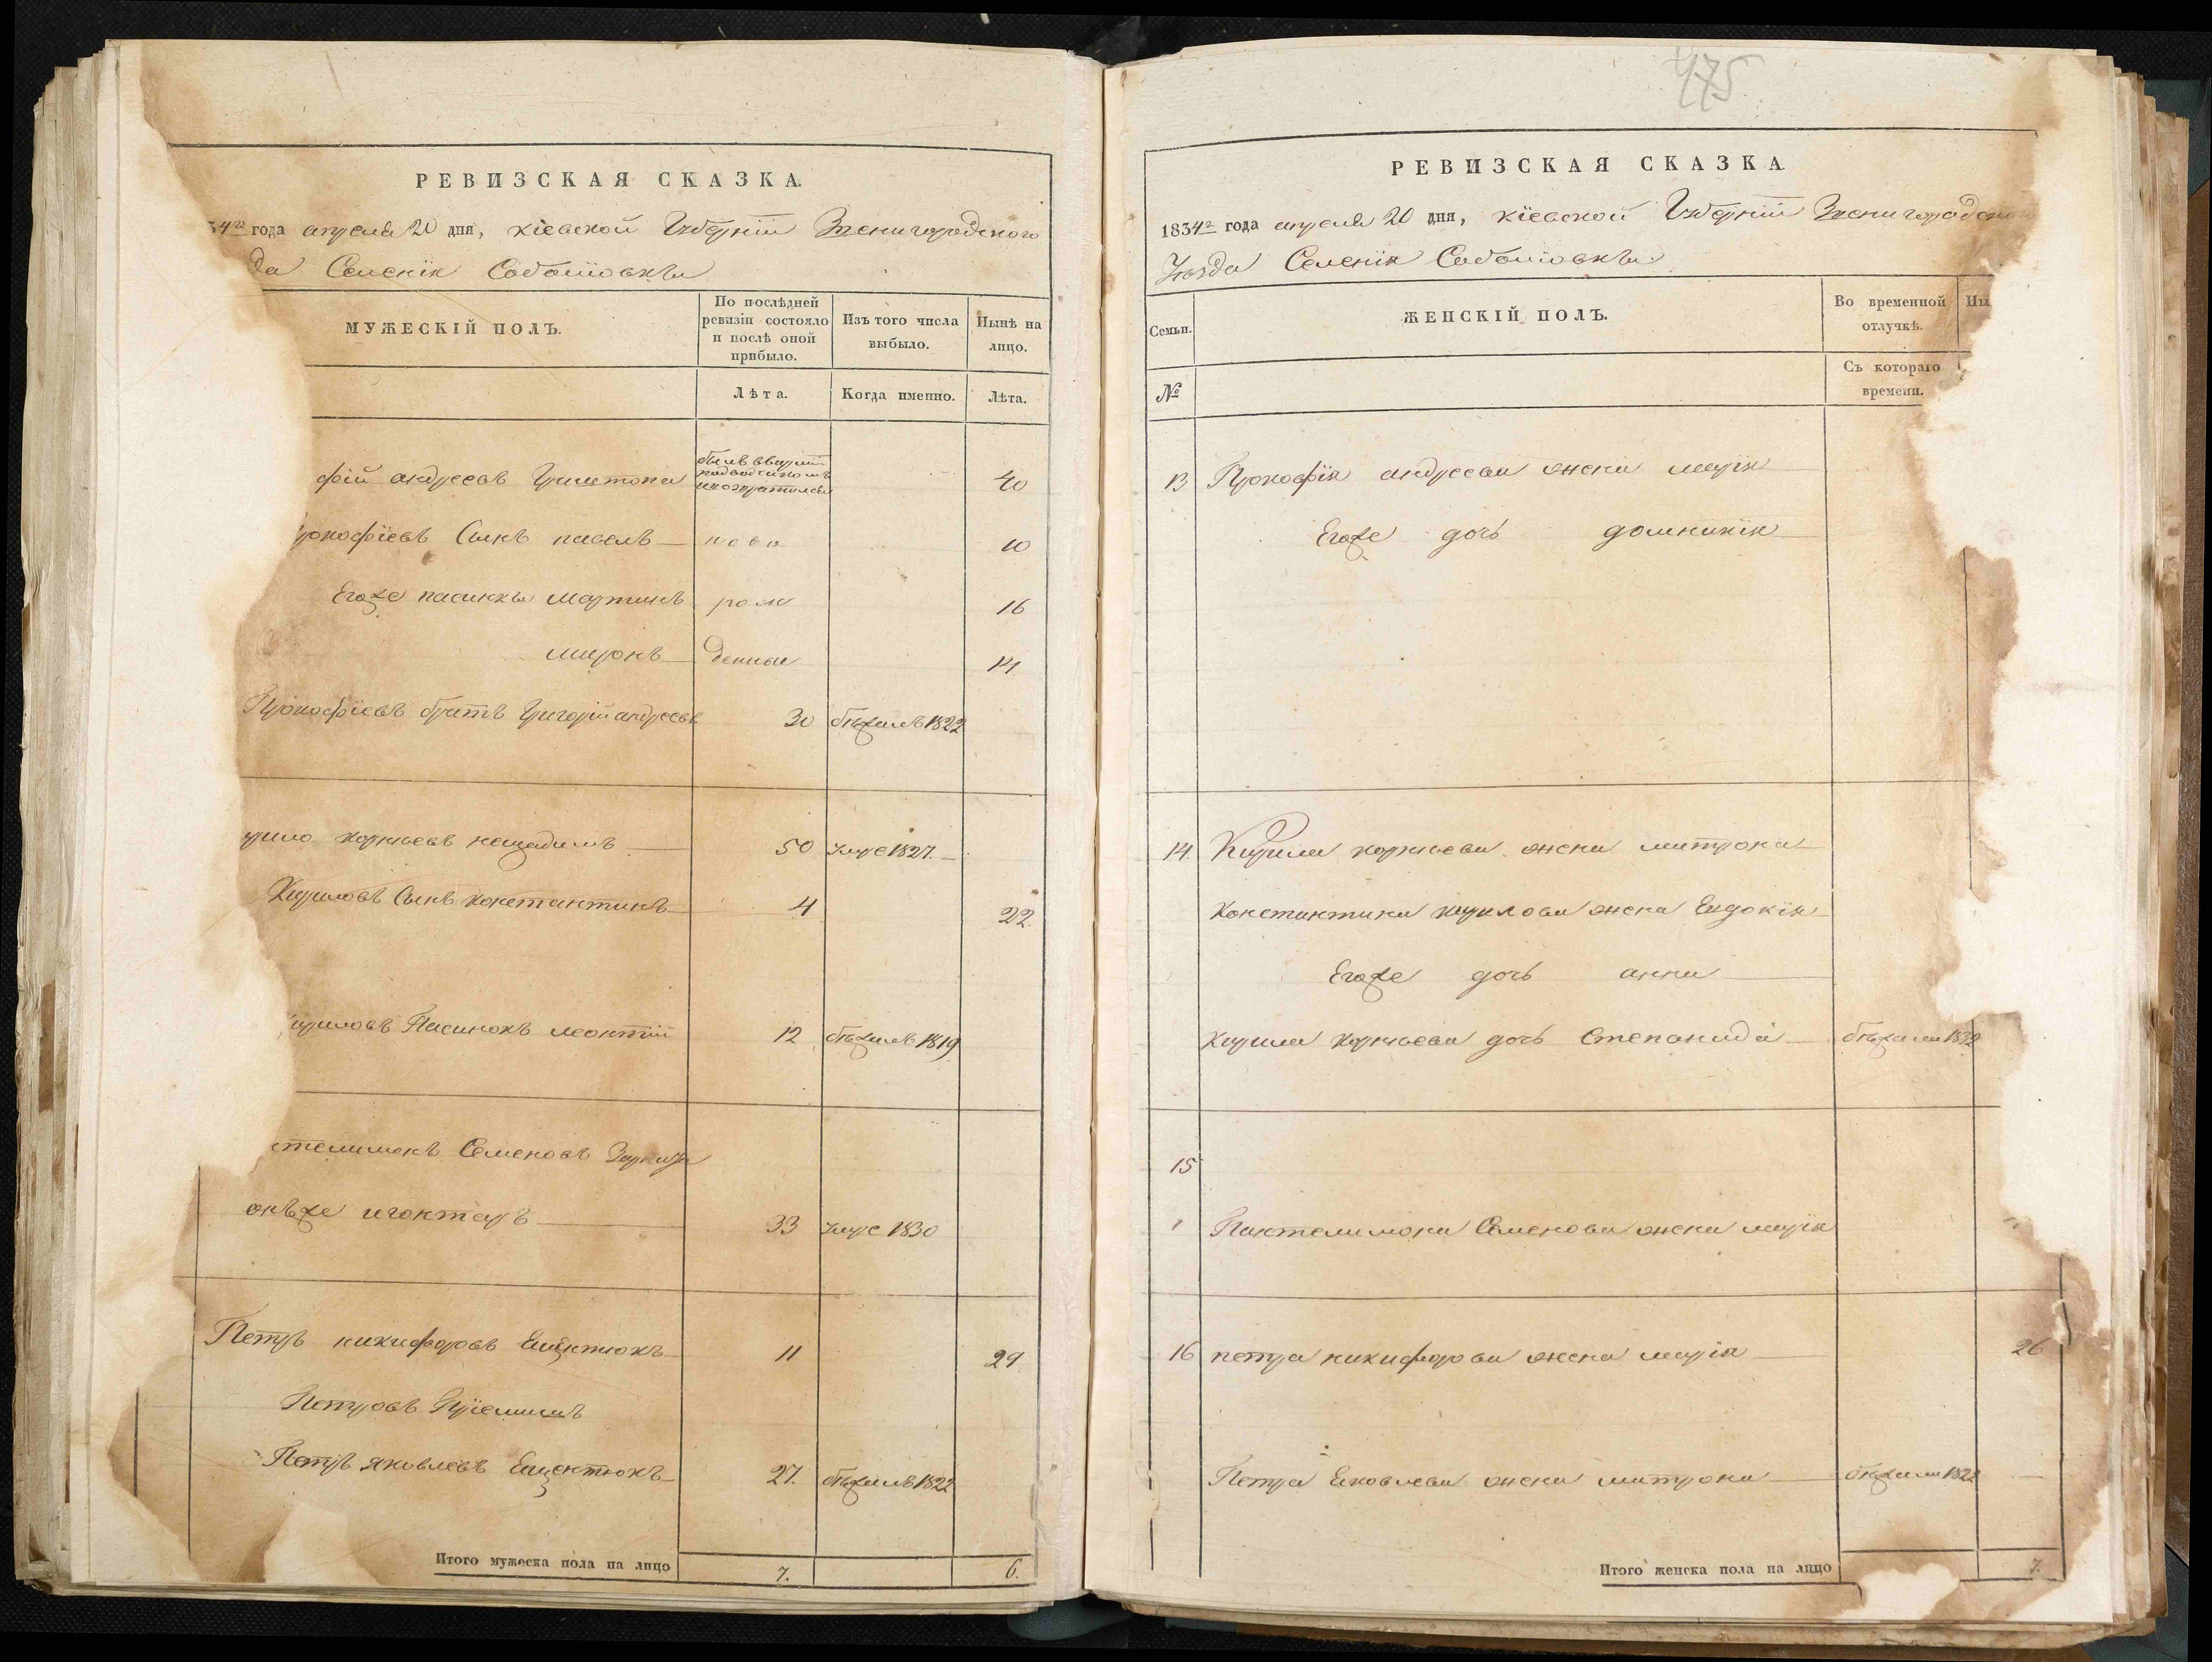 РЕВИЗСКАЯ СКАЗКА.
34го года апреля 20 дня, кіевской Губерніи Звенигородского
да Селенія Соботовки
МУЖЕСКІЙ ПОЛЪ.
По послѣдней ревизіи состояло и послѣ оной прибыло.
Изъ того числа выбыло.
Нынѣ на лицо.
Лѣта.
Когда именно.
Лѣта.
фій андреевъ
40
рокофіевъ Сынъ павелъ
ново
10
Егоже пасинки мартинъ
рож
16
миронъ
денные
14
Прокофіевъ братъ григорій андреевъ
30
бѣжалъ 1822
рило корнѣевъ
50
умре 1827.
Кириловъ Сынъ константинъ
4
22.
ириловъ Пасинокъ леонтій
12
бѣжалъ 1819
телимонъ Семеновъ
онъже
33
умре 1830
Петръ никифоровъ
11
29
Петровъ Пріемишъ
Петръ яковлевъ
27.
бѣжалъ 1822
Итого мужеска пола на лицо
7.
6.
475
РЕВИЗСКАЯ СКАЗКА
1834го года апреля 20 дня, кіевской Губерніи Звенигородского
Уѣзда Селенія Соботовки
Семьи.
ЖЕНСКІЙ ПОЛЪ.
Во временной отлучкѣ.
Ны
№
Съ котораго времени.
13
Прокофія андреева жена марія
Егоже дочь домникія
14.
Кирила корнѣева жена митрона
Константина кирилова жена Евдокія
Егоже дочь анна
Кирила корнѣева дочь Степанида
бѣжала 1832
15
Пантелимона Семенова жена марія
16
петра никифорова жена марія
26
Петра Яковлева жена митрона
бѣжала 1822
Итого женска пола на лицо
7.